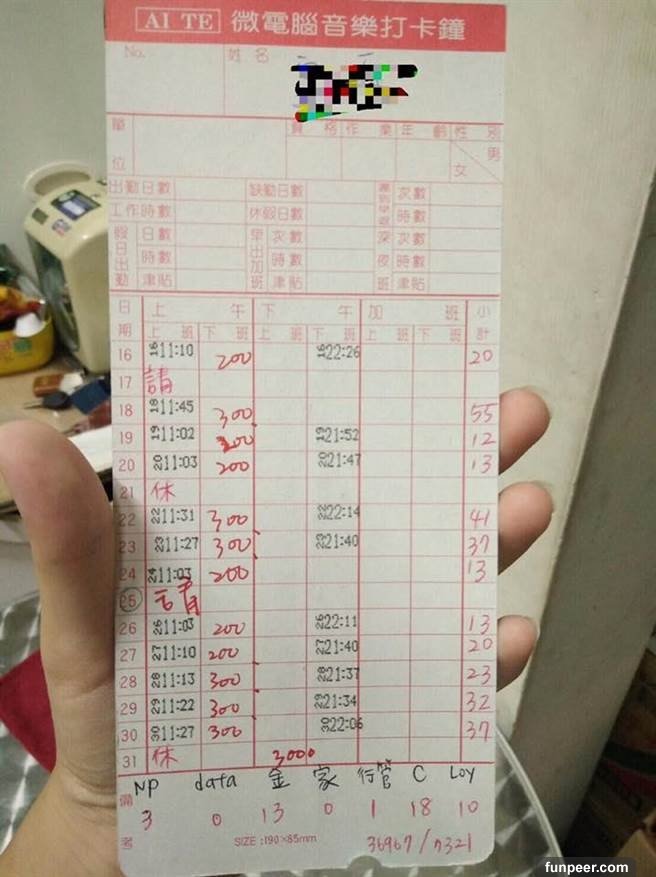 AI TE 微電腦音樂打卡鐘
No. 姓名
單位 資格 作業 年齡 性別 男 女
出勤日數 缺勤日數 遲到早退 次數
工作時數 休假日數 時數
假日出勤 日數 早出加班 次數 深夜班 次數
時數 時數 時數
津貼 津貼 津貼
日期 上午 下午 加班 小計
上班 下班 上班 下班 上班 下班
16 16 11:10 200 16 22:26 20
17 請
18 18 11:45 300 55
19 19 11:02 200 19 21:52 12
20 20 11:03 200 20 21:47 13
21 休
22 22 11:31 300 22 22:14 41
23 23 11:27 300 23 21:40 37
24 24 11:03 200 13
25 請
26 26 11:03 200 26 22:11 13
27 27 11:10 200 27 21:40 20
28 28 11:13 300 28 21:37 23
29 29 11:22 300 29 21:34 32
30 30 11:27 300 30 22:06 37
31 休 3000
備考
NP data 金 家 行管 C Loy
3 0 13 0 1 18 10
SIZE:190×85mm
funpeer.com